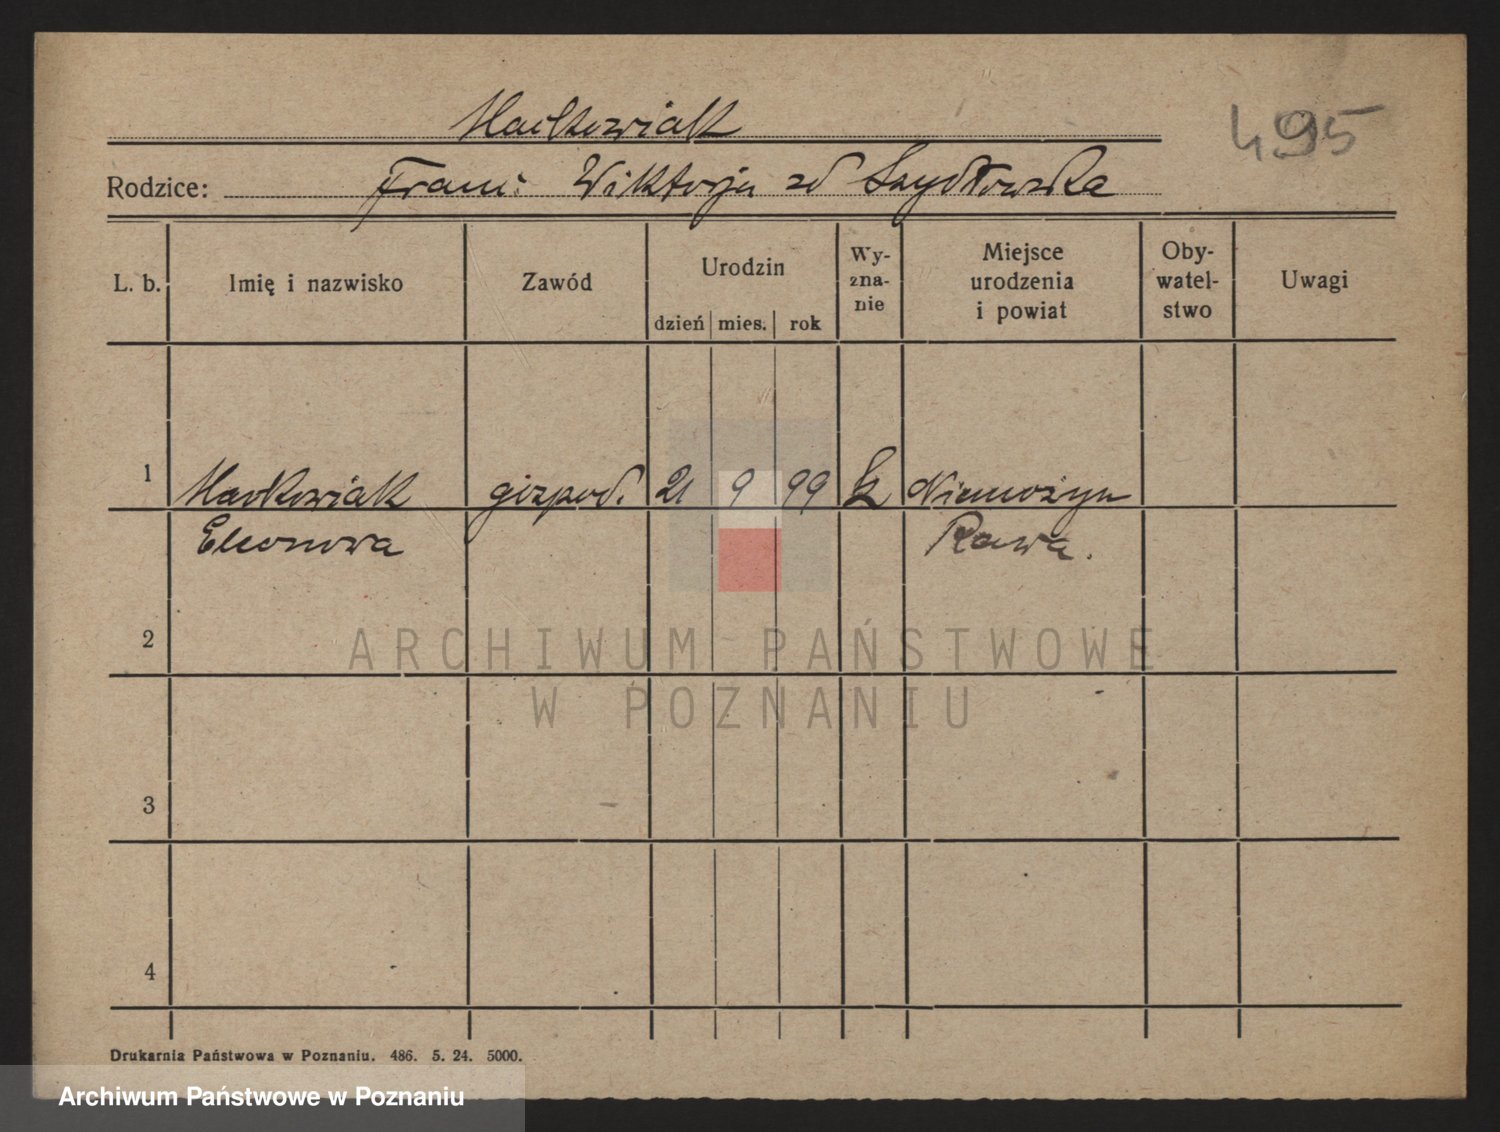 Maćkowiak
495
Rodzice: Franc. Wiktorja zd Szydłowska
L. b. Imię i nazwisko Zawód Urodzin dzień mies. rok Wy-zna-nie Miejsce urodzenia i powiat Oby-watel-stwo Uwagi
1 Maćkowiak gospod. 21 9 99 k
Eleonora Rawa.
2
3
4
ARCHIWUM PAŃSTWOWE
W POZNANIU
Drukarnia Państwowa w Poznaniu. 486. 5. 24. 5000.
Archiwum Państwowe w Poznaniu